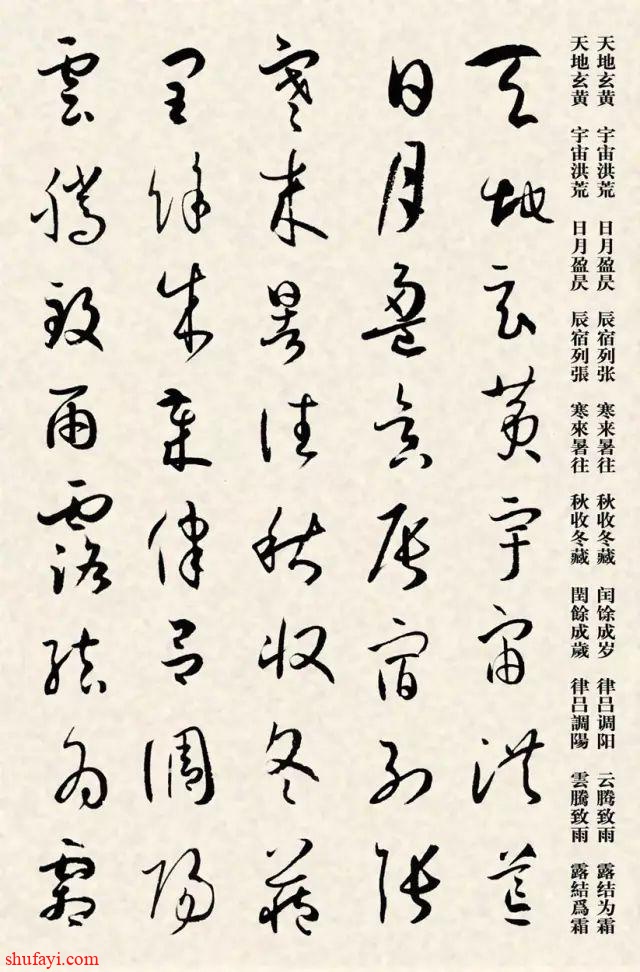 天地玄黄 宇宙洪荒 日月盈昃 辰宿列张 寒来暑往 秋收冬藏 闰馀成岁 律吕调阳 云腾致雨 露结为霜
天地玄黄 宇宙洪荒 日月盈昃 辰宿列張 寒來暑往 秋收冬藏 閏餘成歲 律呂調陽 雲騰致雨 露結爲霜
天地玄黄宇宙洪荒
日月盈昃辰宿列張
寒來暑往秋收冬藏
閏餘成歲律呂調陽
雲騰致雨露結為霜
shufayi.com